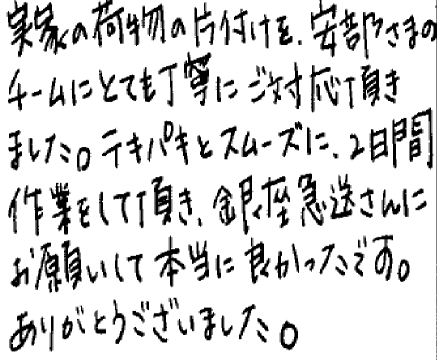 実家の荷物の片付けを、安部さまの
チームにとても丁寧にご対応頂き
ました。テキパキとスムーズに、2日間
作業をして頂き、銀座急送さんに
お願いして本当に良かったです。
ありがとうございました。